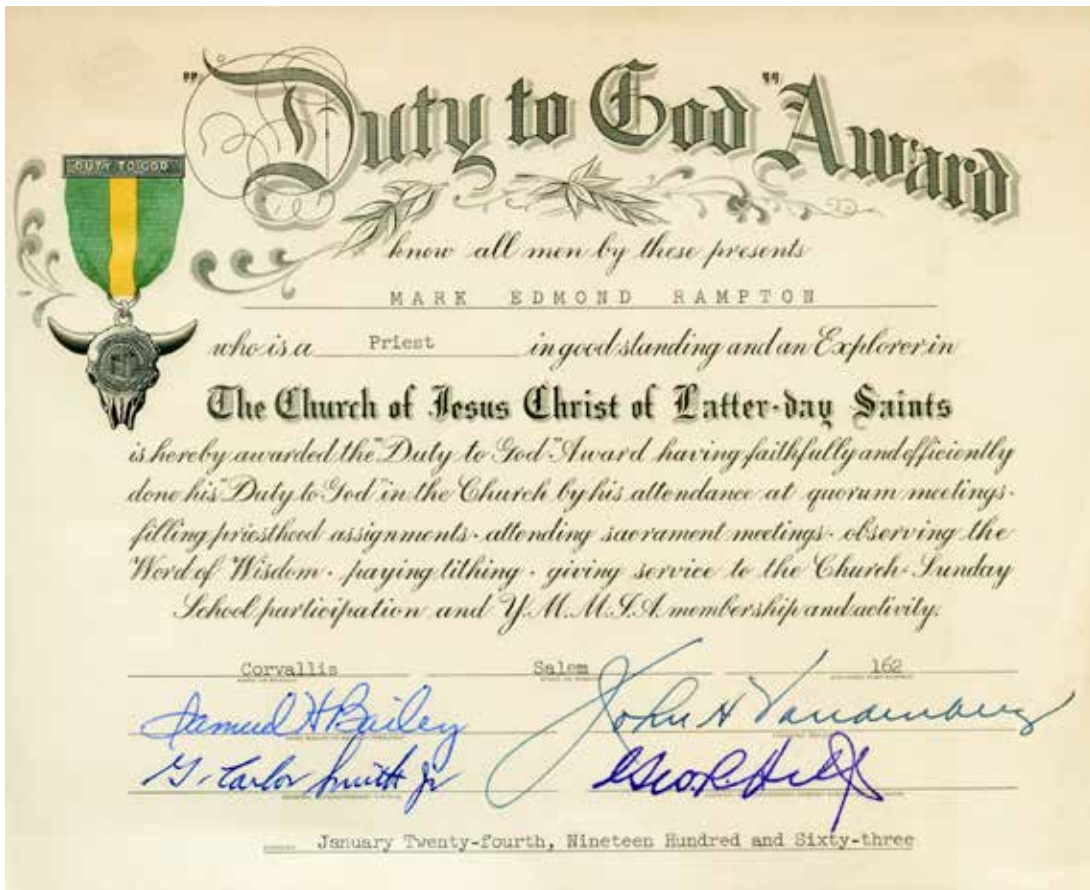 "Duty to God" Award
DUTY TO GOD
know all men by these presents
MARK EDMOND RAMPTON
who is a Priest in good standing and an Explorer in
The Church of Jesus Christ of Latter-day Saints
is hereby awarded the "Duty to God" Award having faithfully and efficiently
done his "Duty to God" in the Church by his attendance at quorum meetings ·
filling priesthood assignments · attending sacrament meetings · observing the
Word of Wisdom · paying tithing · giving service to the Church · Sunday
School participation and Y.M.M.I.A. membership and activity.
Corvallis Salem 162
Samuel H Bailey John H Vandenberg
G. Carlos Smith Jr Geo R Hill
January Twenty-fourth, Nineteen Hundred and Sixty-three